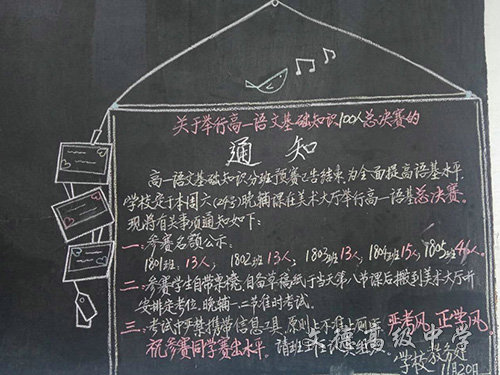 关于举行高一语文基础知识100人总决赛的
通知
高一语文基础知识分班预赛已告结束,为全面提高语基水平,
学校定于本周六(24号)晚辅课在美术大厅举行高一语基总决赛。
现将有关事项通知如下:
一:参赛名额公示:
1801班:13人; 1802班13人; 1803班13人; 1804班15人; 1805班46人。
二:参赛学生自带桌凳,自备草稿纸于当天第八节课后搬到美术大厅并
安排定考位,晚辅一二节准时考试。
三:考试中严禁携带信息工具,原则上不准上厕所。严考风,正学风,
祝参赛同学赛出水平。请班主任
学校教务处
11月20日
高级中学